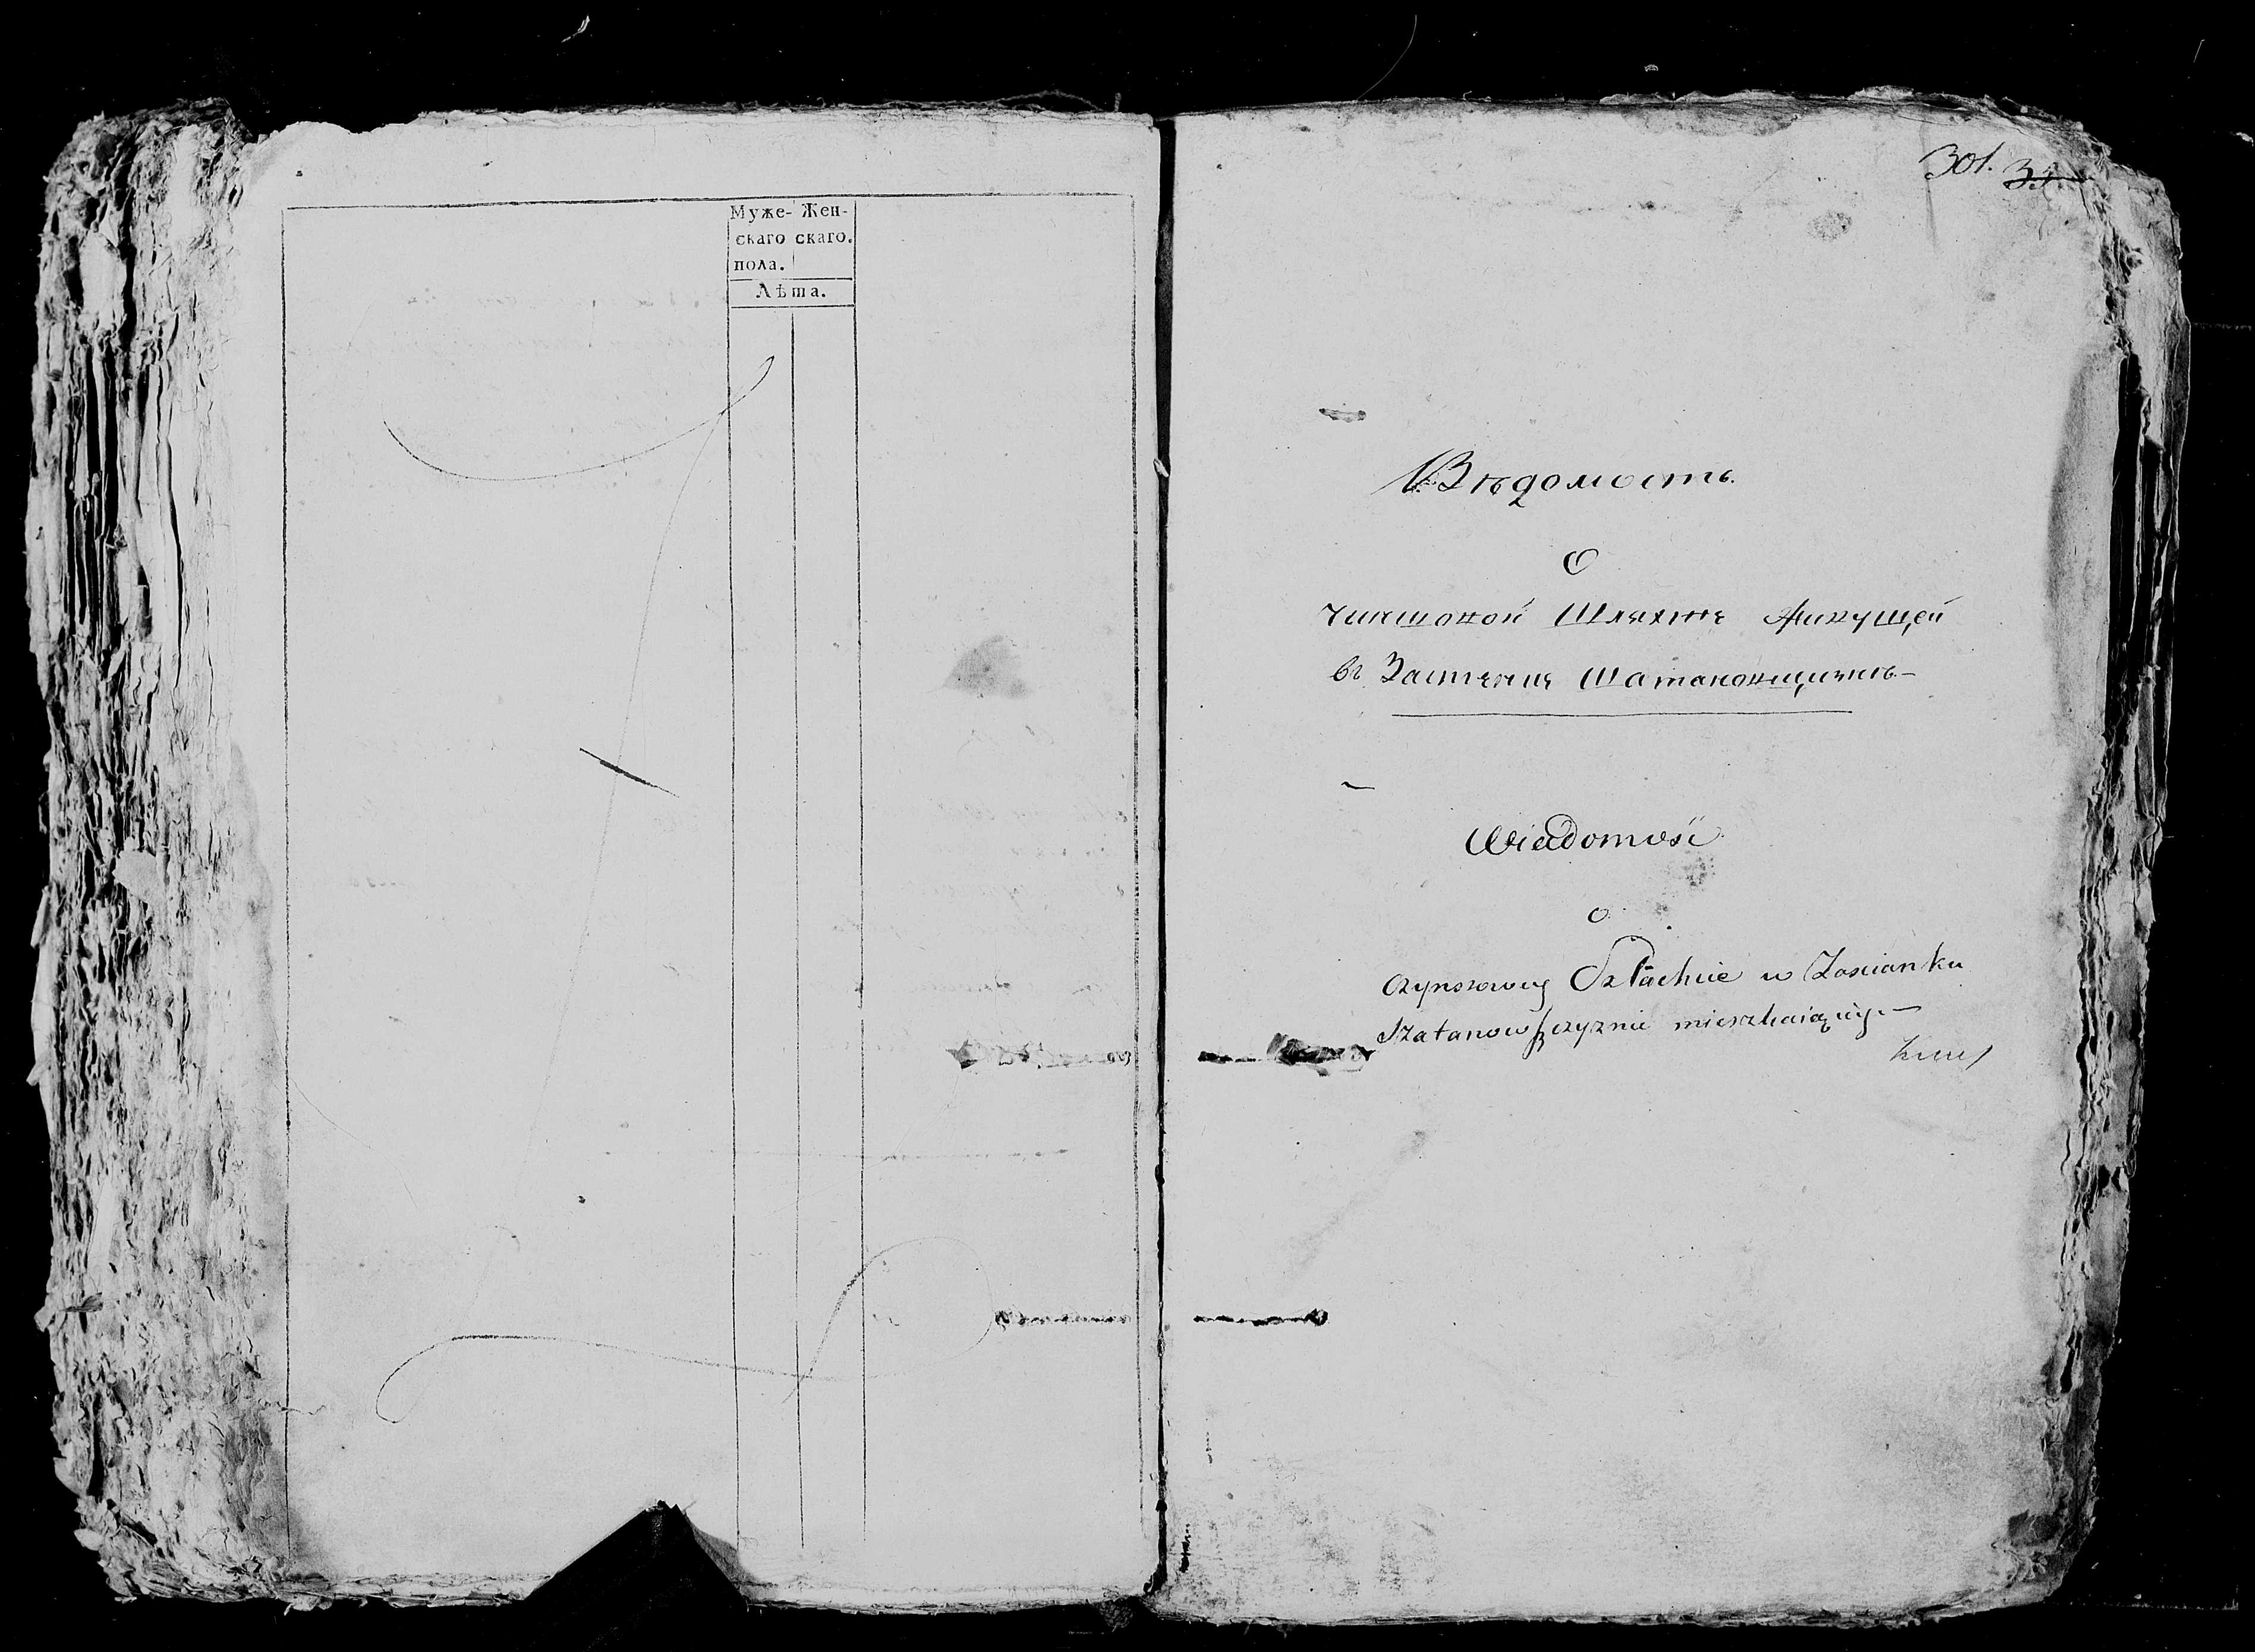 Муже- Жен-
скаго скаго.
пола.
Лѣта.
301.
Вѣдомость
О
чиншовой Шляхте Живущей
въ Застенце Шатановщизнѣ
Wiadomość
o
czynszowey Szlachcie w Zascianku
Szatanowszczyznie mieszkaiącey